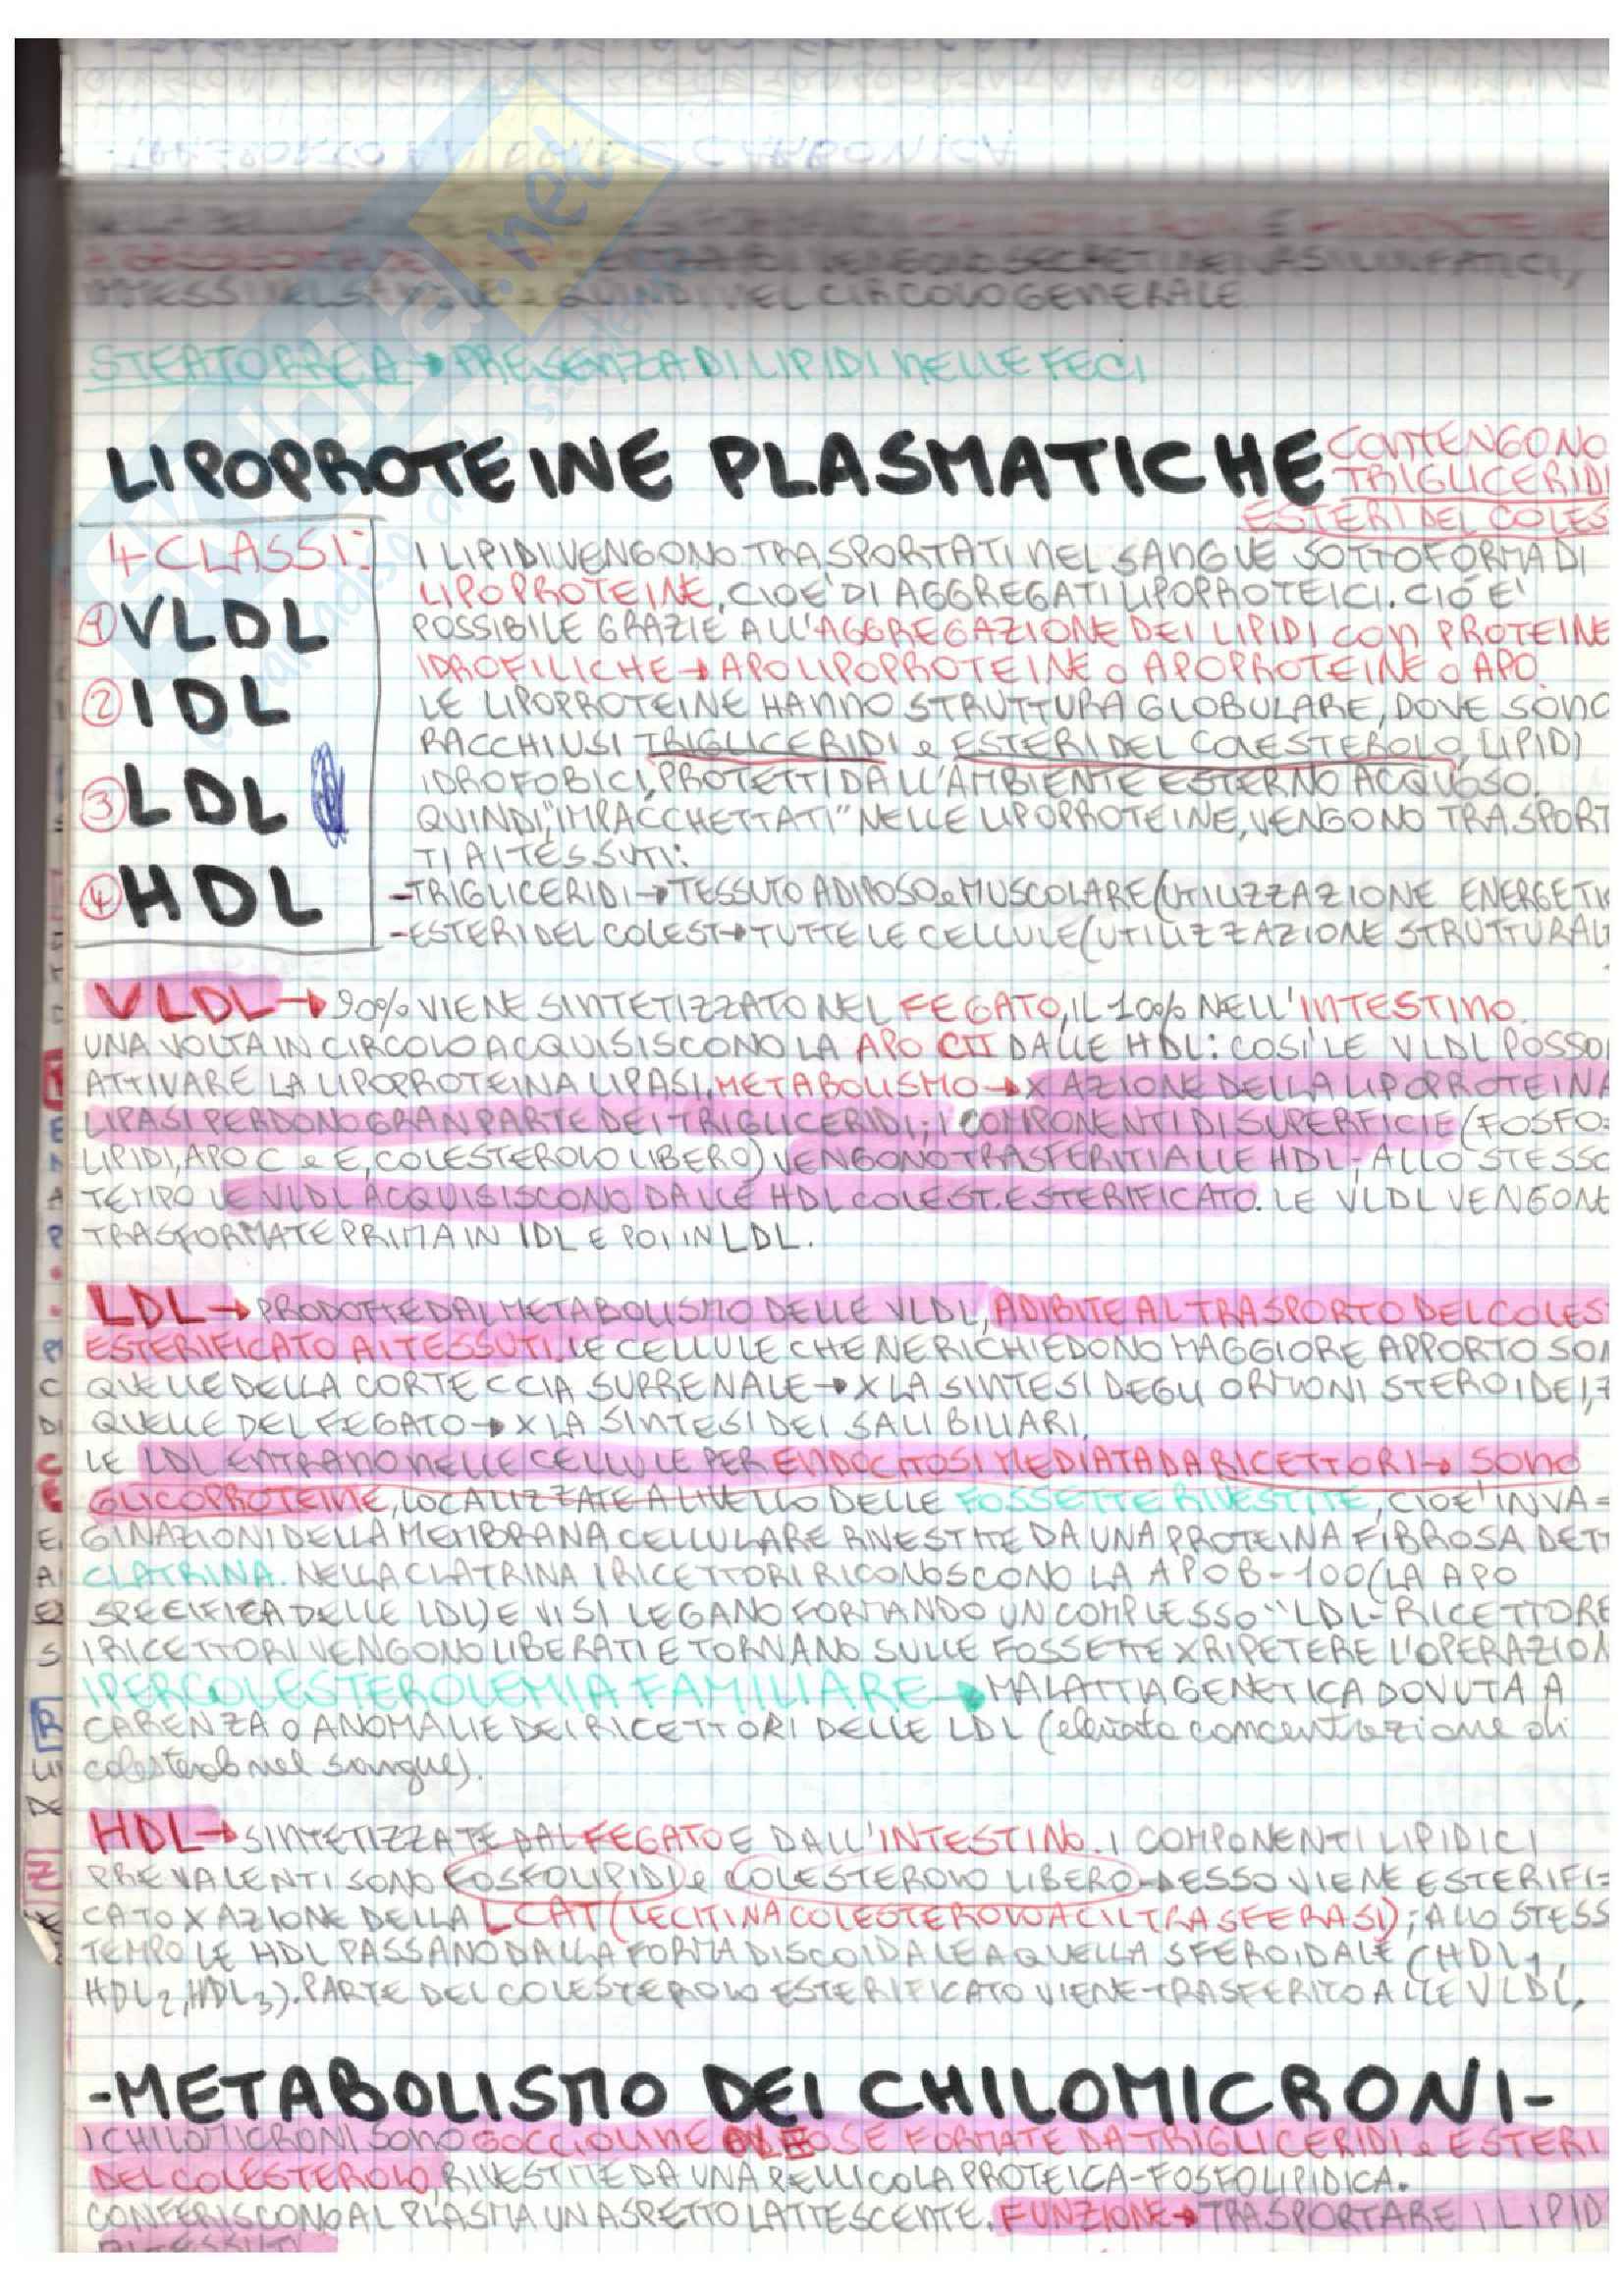 TRASPORTO ANIDRIDE CARBONICA
VENGONO SECRETI NEI VASI LINFATICI,
IMMESSI NEL SANGUE e QUINDI NEL CIRCOLO GENERALE
STEATORREA → PRESENZA DI LIPIDI NELLE FECI
LIPOPROTEINE PLASMATICHE
CONTENGONO
TRIGLICERIDI
ESTERI DEL COLES
4 CLASSI:
① VLDL
② IDL
③ LDL
④ HDL
I LIPIDI VENGONO TRASPORTATI NEL SANGUE SOTTOFORMA DI
LIPOPROTEINE, CIOE' DI AGGREGATI LIPOPROTEICI. CIÒ E'
POSSIBILE GRAZIE ALL'AGGREGAZIONE DEI LIPIDI CON PROTEINE
IDROFILICHE → APOLIPOPROTEINE o APOPROTEINE o APO.
LE LIPOPROTEINE HANNO STRUTTURA GLOBULARE, DOVE SONO
RACCHIUSI TRIGLICERIDI e ESTERI DEL COLESTEROLO, LIPIDI
IDROFOBICI, PROTETTI DALL'AMBIENTE ESTERNO ACQUOSO.
QUINDI, "IMPACCHETTATI" NELLE LIPOPROTEINE, VENGONO TRASPORT
TI AI TESSUTI:
-TRIGLICERIDI → TESSUTO ADIPOSO e MUSCOLARE (UTILIZZAZIONE ENERGETIC
-ESTERI DEL COLEST → TUTTE LE CELLULE (UTILIZZAZIONE STRUTTURAL
VLDL → 90% VIENE SINTETIZZATO NEL FEGATO, IL 10% NELL'INTESTINO.
UNA VOLTA IN CIRCOLO ACQUISISCONO LA APO CII DALLE HDL: COSÌ LE VLDL POSSO
ATTIVARE LA LIPOPROTEINA LIPASI. METABOLISMO → X AZIONE DELLA LIPOPROTEINA
LIPASI PERDONO GRAN PARTE DEI TRIGLICERIDI; I COMPONENTI DI SUPERFICIE (FOSFO=
LIPIDI, APO C e E, COLESTEROLO LIBERO) VENGONO TRASFERITI ALLE HDL; ALLO STESSO
TEMPO LE VLDL ACQUISISCONO DALLE HDL COLEST. ESTERIFICATO. LE VLDL VENGONO
TRASFORMATE PRIMA IN IDL E POI IN LDL.
LDL → PRODOTTE DAL METABOLISMO DELLE VLDL, ADIBITE AL TRASPORTO DEL COLEST
ESTERIFICATO AI TESSUTI. LE CELLULE CHE NE RICHIEDONO MAGGIORE APPORTO SON
QUELLE DELLA CORTECCIA SURRENALE → X LA SINTESI DEGLI ORMONI STEROIDEI,
QUELLE DEL FEGATO → X LA SINTESI DEI SALI BILIARI.
LE LDL ENTRANO NELLE CELLULE PER ENDOCITOSI MEDIATA DA RICETTORI → SONO
GLICOPROTEINE, LOCALIZZATE A LIVELLO DELLE FOSSETTE RIVESTITE, CIOE' INVA=
GINAZIONI DELLA MEMBRANA CELLULARE RIVESTITE DA UNA PROTEINA FIBROSA DETT
CLATRINA. NELLA CLATRINA I RICETTORI RICONOSCONO LA APO B-100 (LA APO
SPECIFICA DELLE LDL) E VI SI LEGANO FORMANDO UN COMPLESSO "LDL-RICETTORE
I RICETTORI VENGONO LIBERATI E TORNANO SULLE FOSSETTE X RIPETERE L'OPERAZION
IPERCOLESTEROLEMIA FAMILIARE → MALATTIA GENETICA DOVUTA A
CARENZA o ANOMALIE DEI RICETTORI DELLE LDL (elevata concentrazione di
colesterolo nel sangue).
HDL → SINTETIZZATE DAL FEGATO E DALL'INTESTINO. I COMPONENTI LIPIDICI
PREVALENTI SONO FOSFOLIPIDI e COLESTEROLO LIBERO → ESSO VIENE ESTERIFI=
CATO X AZIONE DELLA LCAT (LECITINA COLESTEROLO ACIL TRASFERASI); ALLO STESS
TEMPO LE HDL PASSANO DALLA FORMA DISCOIDALE A QUELLA SFEROIDALE (HDL1,
HDL2, HDL3). PARTE DEL COLESTEROLO ESTERIFICATO VIENE TRASFERITO ALLE VLDL.
-METABOLISMO DEI CHILOMICRONI-
I CHILOMICRONI SONO GOCCIOLINE OLEOSE FORMATE DA TRIGLICERIDI e ESTERI
DEL COLESTEROLO, RIVESTITE DA UNA PELLICOLA PROTEICA-FOSFOLIPIDICA.
CONFERISCONO AL PLASMA UN ASPETTO LATTESCENTE. FUNZIONE → TRASPORTARE I LIPID
AI TESSUTI